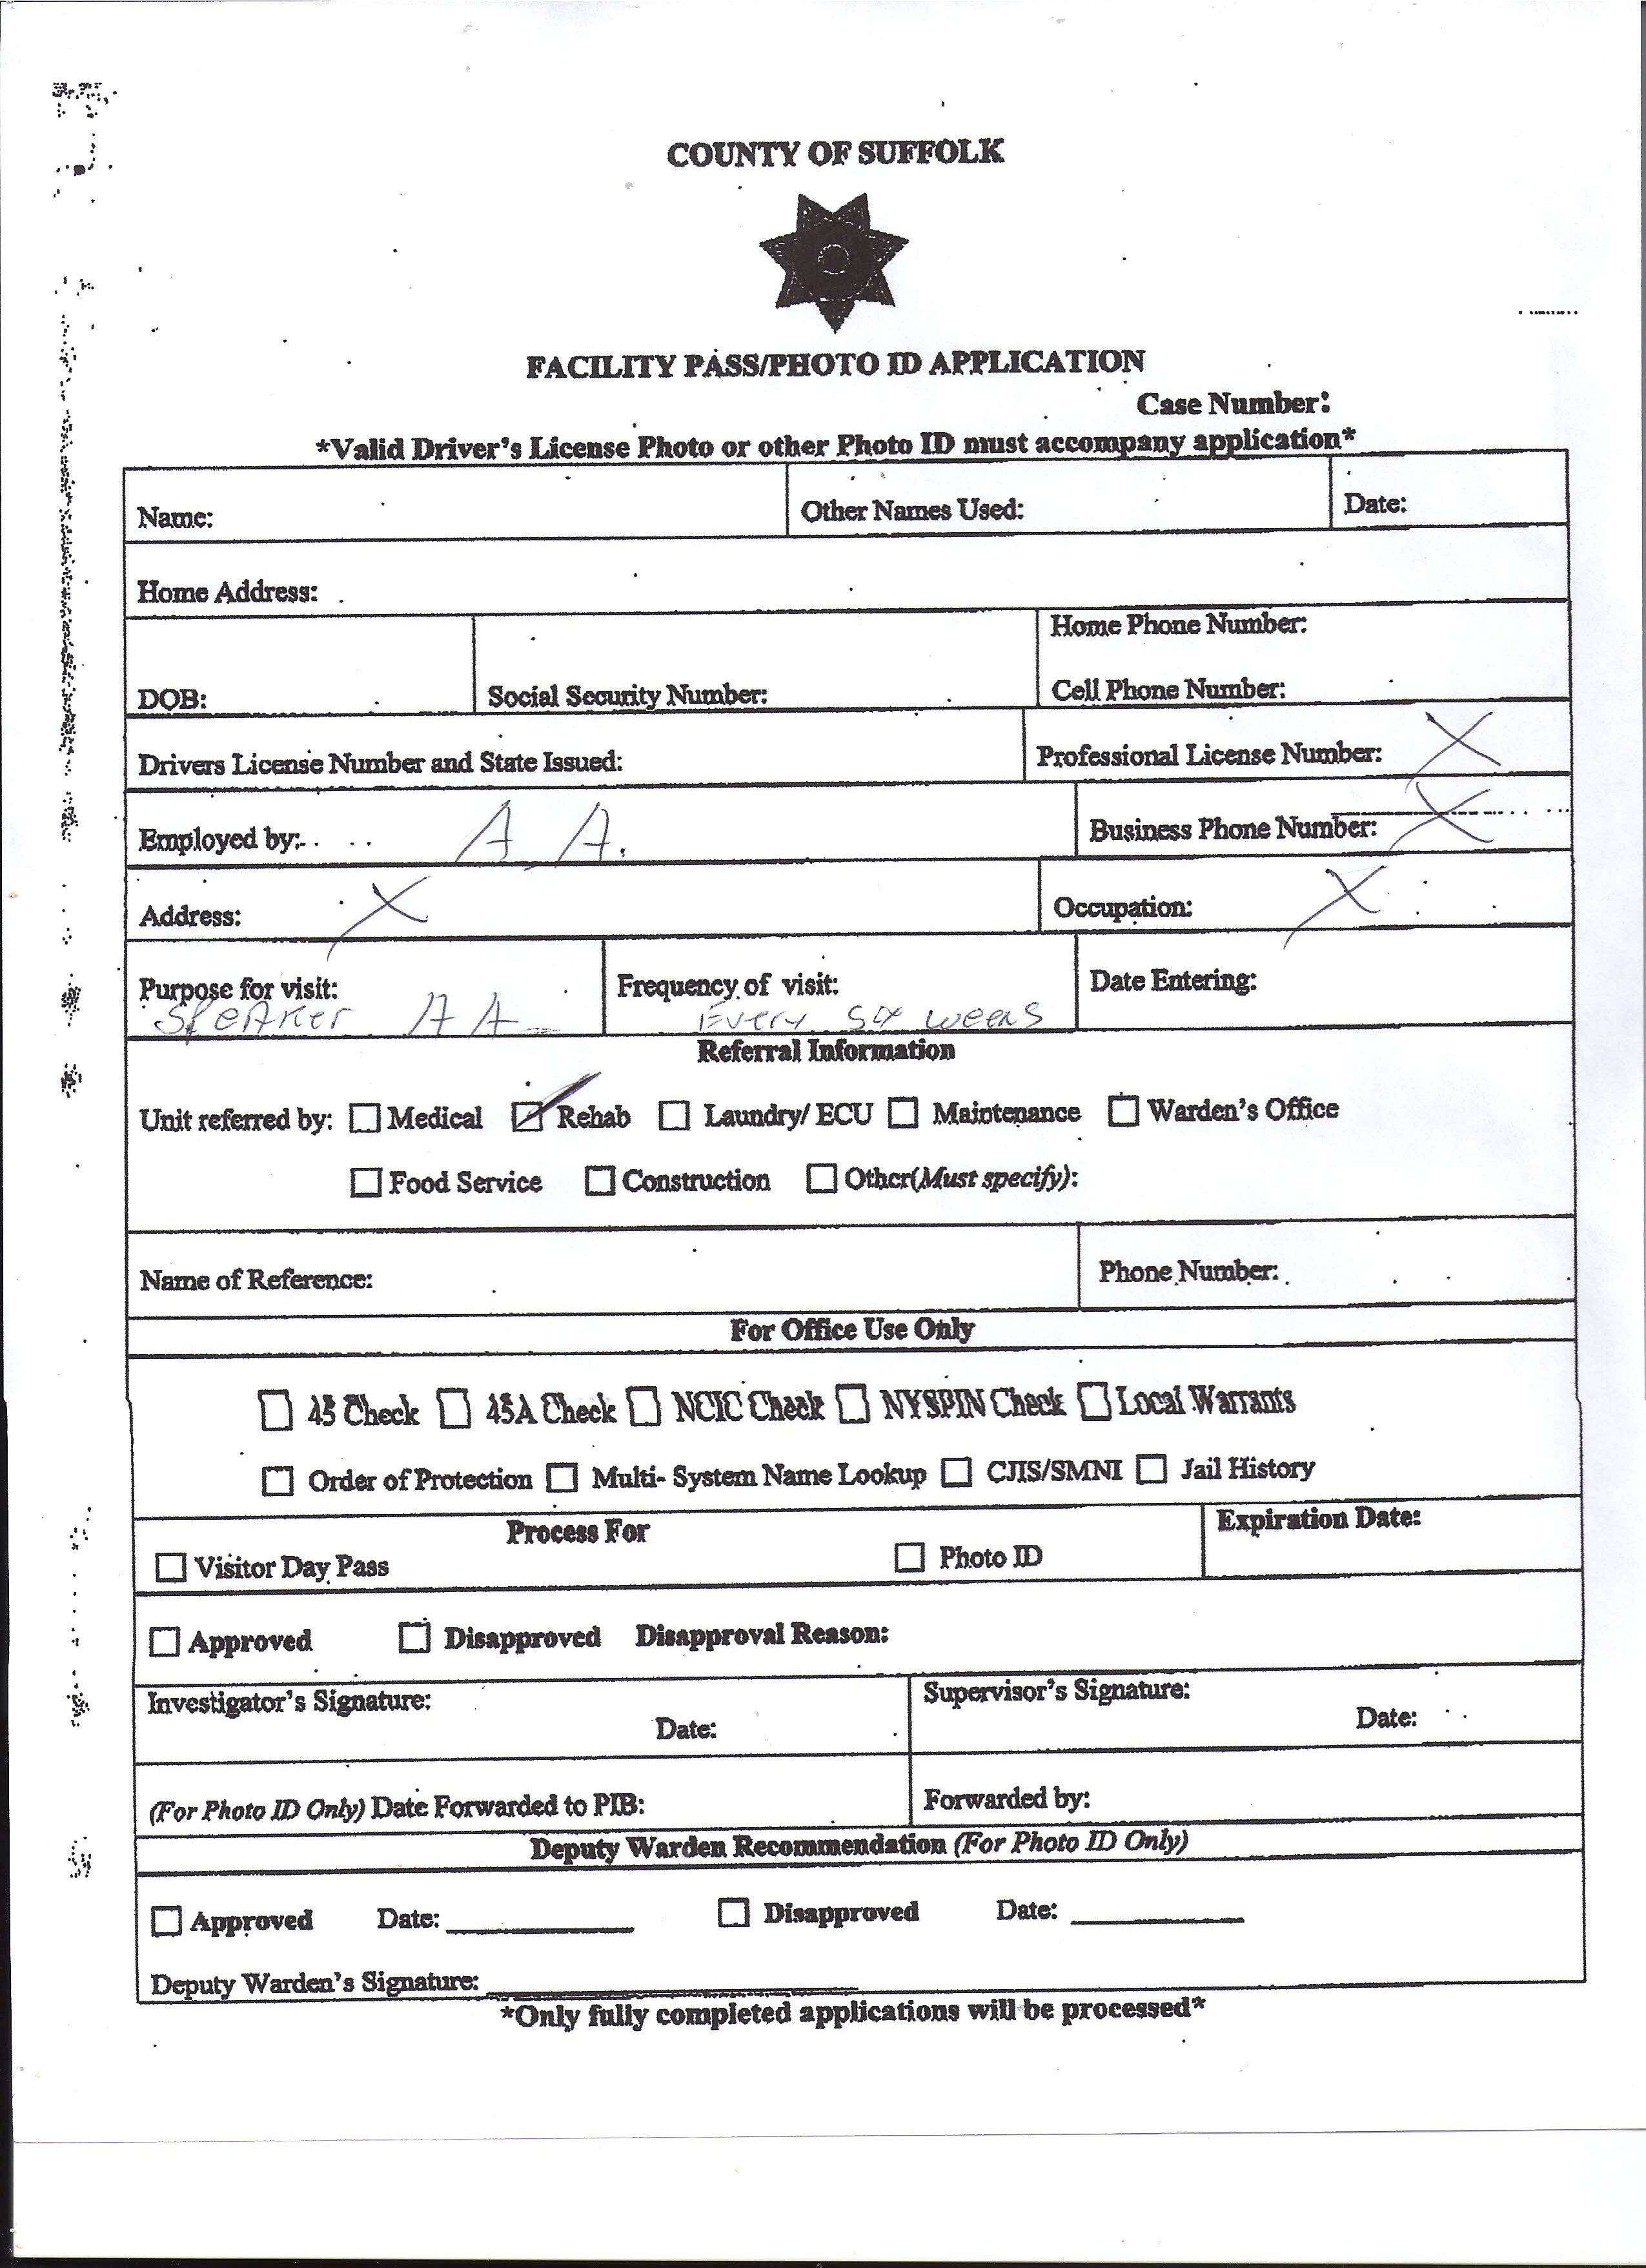 COUNTY OF SUFFOLK
FACILITY PASS/PHOTO ID APPLICATION
Case Number:
*Valid Driver's License Photo or other Photo ID must accompany application*
Name: Other Names Used: Date:
Home Address:
Home Phone Number:
DOB: Social Security Number: Cell Phone Number:
Drivers License Number and State Issued: Professional License Number: X
Employed by: A A. Business Phone Number: X
Address: X Occupation: X
Purpose for visit: Frequency of visit: Date Entering:
Speaker AA Every six weeks
Referral Information
Unit referred by: Medical Rehab Laundry/ ECU Maintenance Warden's Office
Food Service Construction Other(Must specify):
Name of Reference: Phone Number:
For Office Use Only
45 Check 45A Check NCIC Check NYSPIN Check Local Warrants
Order of Protection Multi- System Name Lookup CJIS/SMNI Jail History
Process For Expiration Date:
Visitor Day Pass Photo ID
Approved Disapproved Disapproval Reason:
Investigator's Signature: Supervisor's Signature:
Date: Date:
(For Photo ID Only) Date Forwarded to PIB: Forwarded by:
Deputy Warden Recommendation (For Photo ID Only)
Approved Date: Disapproved Date:
Deputy Warden's Signature:
*Only fully completed applications will be processed*